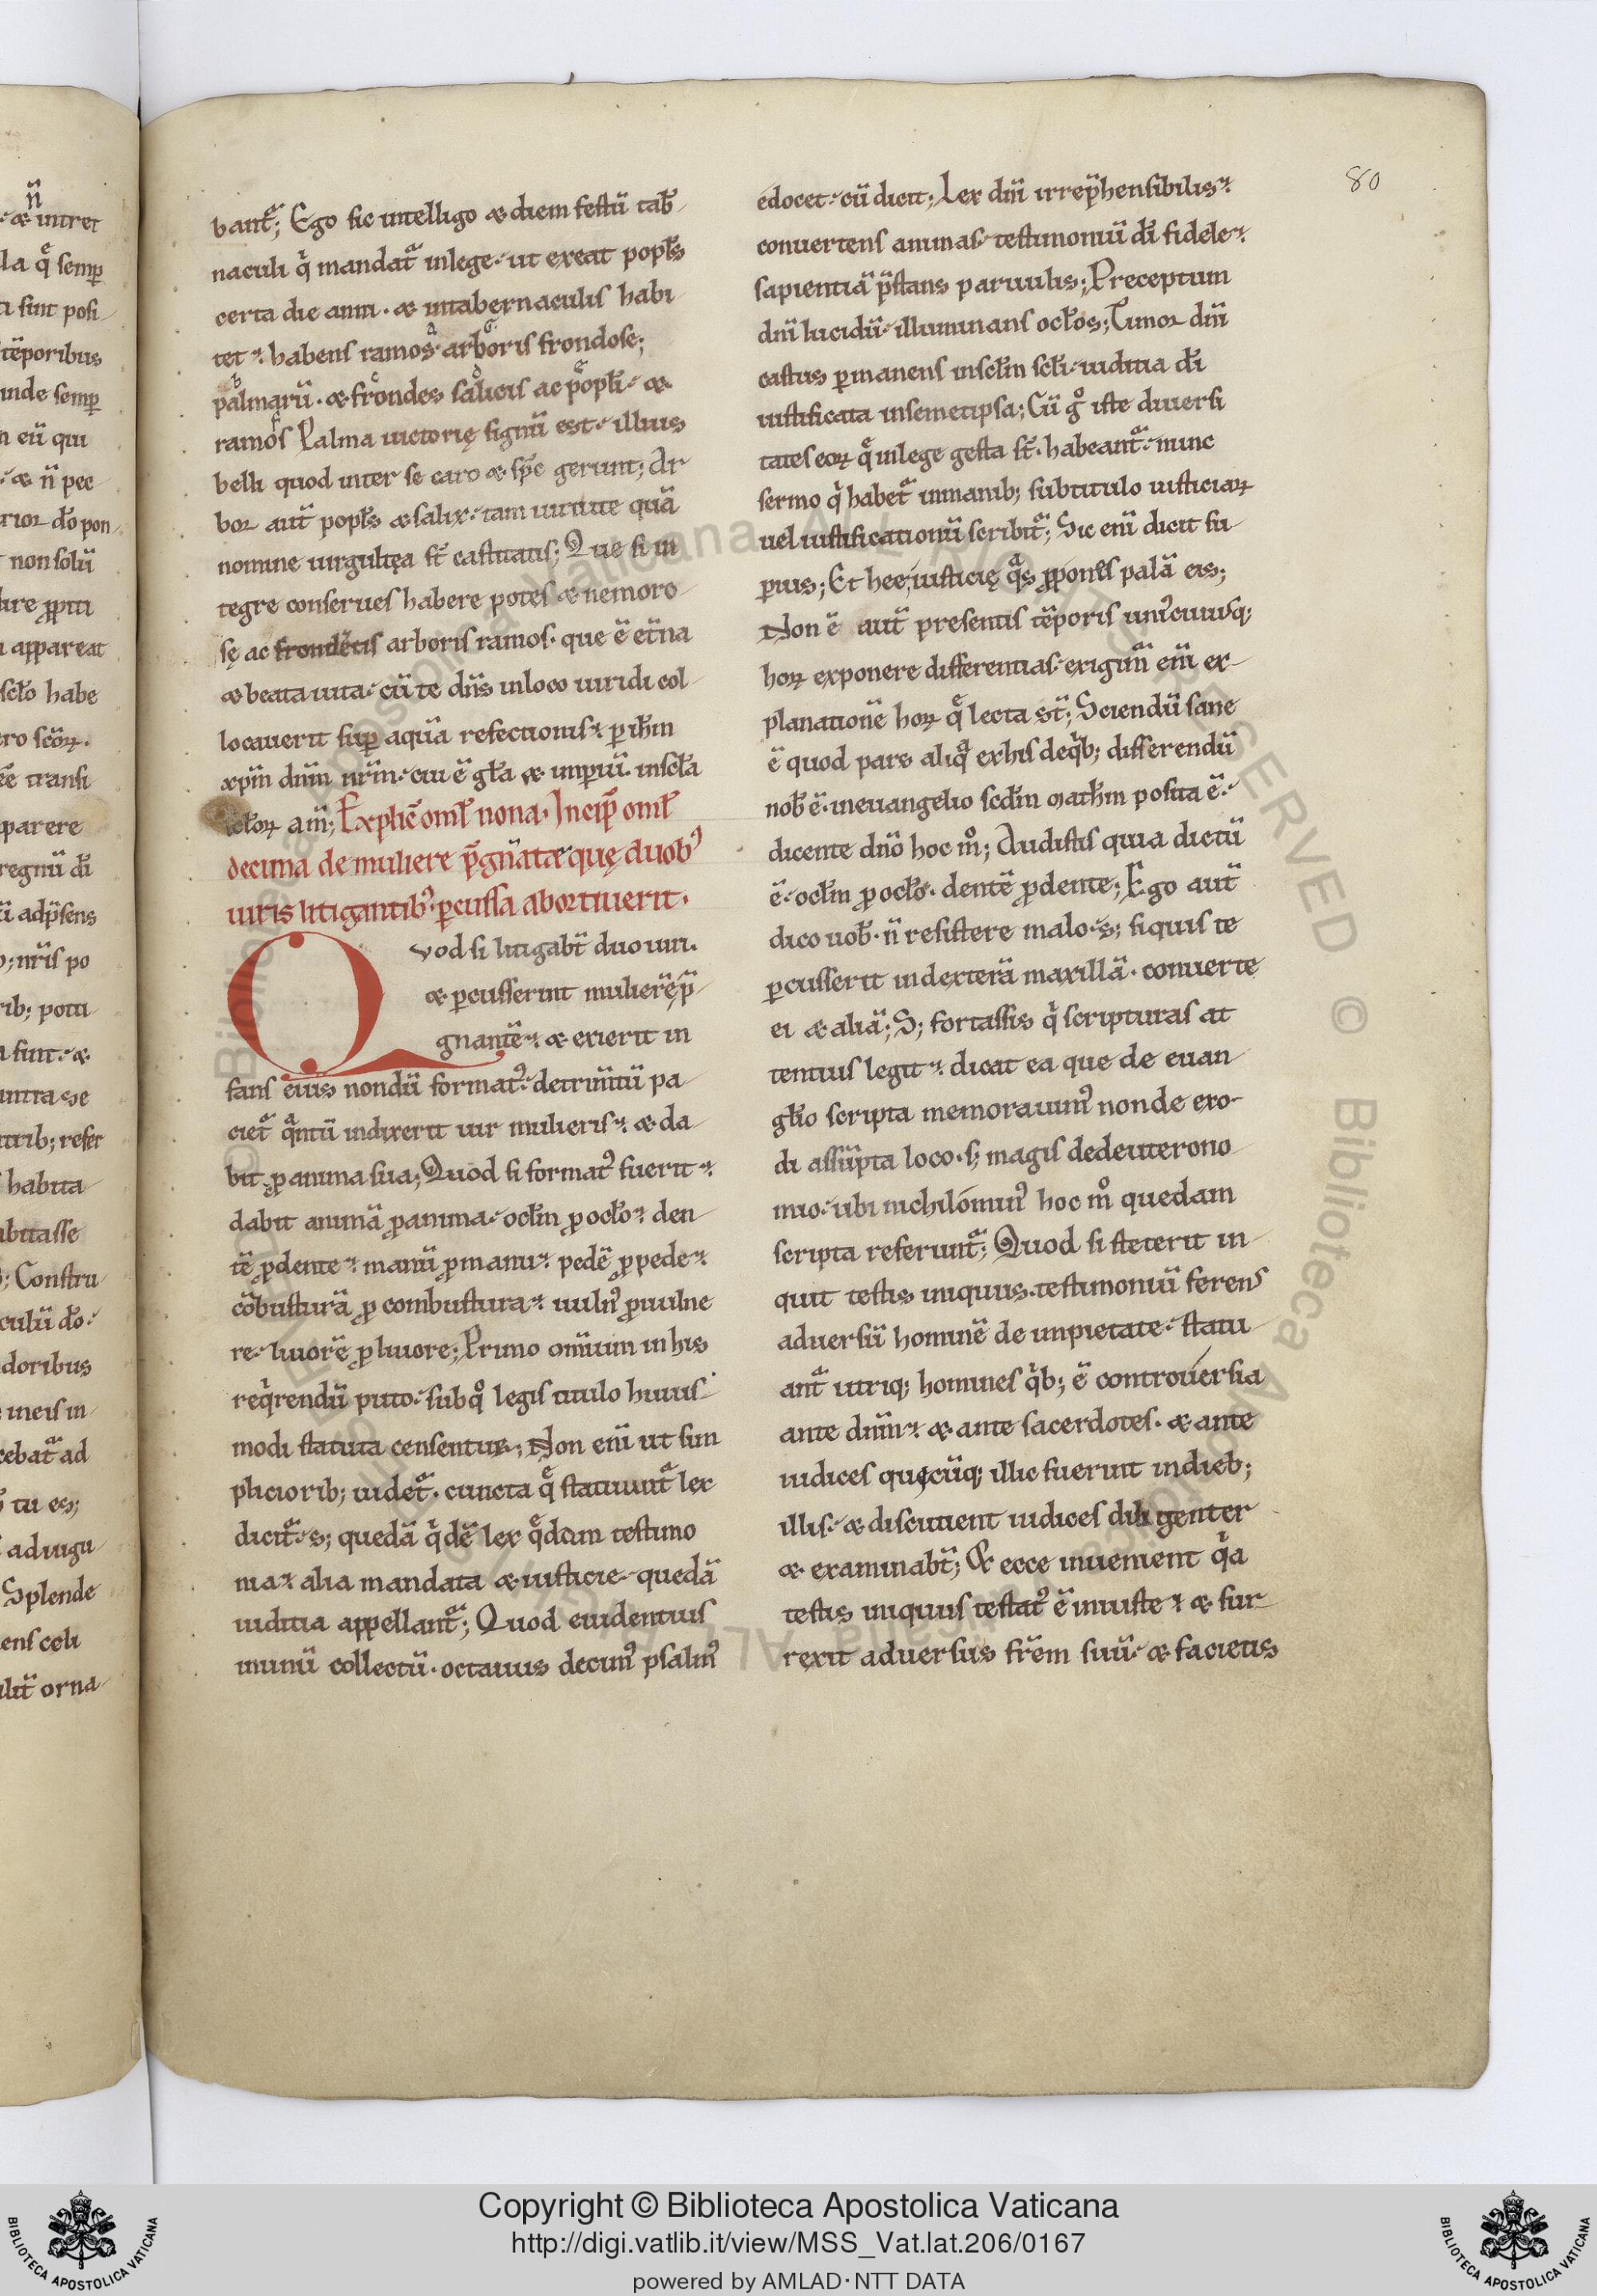 80
bant᷑; Ego sic intelligo & diem festū tab̄
naculi q̇ mandat᷑ inlege. ut exeat popl̄s
certa die anni. & intabernaculis habi
tet. habens ramos arboris frondose;
palmarū. & frondes salicis ac popli. &
ramos Palma uictorię signū est. illius
belli quod inter se caro & sp̄c gerunt; Ar
bor aut̄ popl̄s & salix. tam uirtute quā
nomine uirgultęa st̄ castitatis; Que si in
tegre conserues habere potes & nemoro
sę ac frondētis arboris ramos. que ē et̄na
& beata uita. cū te dn̄s inloco uiridi col
locauerit sup aquā refectionis. p ih̄m
xp̄m dn̄m nr̄m. cui ē gl̄a & imperiū. inscl̄a
scl̄oꝝ am̄; Explic̄ oml̄ nona. Incip̄ oml̄
decima de muliere p̄gn̄atæ quę duobꝰ
uiris litigantibꝰ. pcussa abortiuerit.
Quod si litigabt̄ duo uiri.
& pcusserint mulierē p̄
gnantē. & exierit in
fans eius nondū formatꝰ. detrim̄tū pa
ciet᷑ q̄ntū indixerit uir mulieris. & da
bit ꝓ anima sua; Quod si formatꝰ fuerit.
dabit animā ꝓ anima. ocl̄m ꝓ ocl̄o. den
tē ꝓ dente. manū ꝓ manu. pedē ꝓ pede.
cōbusturā ꝓ combustura. uulnꝰ ꝓ uulne
re. liuorē ꝓ liuore; Primo omīum in his
req̇rendū puto. sub q̊ legis titulo huius
modi statuta censentur; Non enī ut sim
pliciorib; uidet᷑. cuncta q̄ statuunt᷑ lex
dicit᷑. s; quedā q̇dē lex q̄dam testimo
nia. alia mandata & iusticie. quedā
iuditia appellant᷑; Quod euidentius
inunū collectū. octauus decimꝰ psalmꝰ
edocet. cū dicit; Lex dn̄i irrep̄hensibilis.
conuertens animas. testimoniū dī fidele.
sapientiā p̄stans paruulis; Preceptum
dn̄i lucidū. illuminans ocl̄os; Timor dn̄i
castus pmanens inscl̄m scl̄i. iuditia dī
iustificata insemetipsa; Cū g̊ iste diuersi
tates eoꝝ q̄ inlege gesta st̄. habeant᷑. nunc
sermo q̇ habet᷑ inmanib; subtitulo iusticiaꝝ
uel iustificationū scribit᷑; Sic enī dicit su
pius; Et hee iusticię q̄s ꝓpones palā eis;
Non ē aut̄ presentis tēporis uniꝰcuiusq;
hoꝝ exponere differentias. exigim̄ eīm ex
planationē hoꝝ q̄ lecta st̄; Sciendū sane
ē quod pars aliq̄ exhis deq̇b; differendū
nob̄ ē. ineuangelio scdm̄ math̄m posita ē.
dicente dn̄o hoc m̊; Audistis quia dictū
ē. ocl̄m ꝓ ocl̄o. dentē ꝓ dente; Ego aut̄
dico uob̄. n̄ resistere malo. s; siquis te
pcusserit indexterā maxillā. conuerte
ei & aliā; S; fortassis q̇ scripturas at
tentius legit. dicat ea que de euan
gl̄io scripta memorauimꝰ nonde exo
di assūpta loco. s; magis dedeuterono
mio. ubi nichilominꝰ hoc m̊ quedam
scripta referunt᷑; Quod si steterit in
quit testis iniquus. testimoniū ferens
aduersū hominē de impietate. statu
ant᷑ utriq; homines q̇b; ē controuersia
ante dn̄m. & ante sacerdotes. & ante
iudices quęcūq; illic fuerint indieb;
illis. & discutient iudices diligenter
& examinabt̄; & ecce inuenient q̇a
testis iniquus testatꝰ ē iniuste. & sur
rexit aduersus fr̄em suū. & facietis
Copyright © Biblioteca Apostolica Vaticana
http://digi.vatlib.it/view/MSS_Vat.lat.206/0167
powered by AMLAD·NTT DATA
BIBLIOTECA APOSTOLICA VATICANA
BIBLIOTECA APOSTOLICA VATICANA